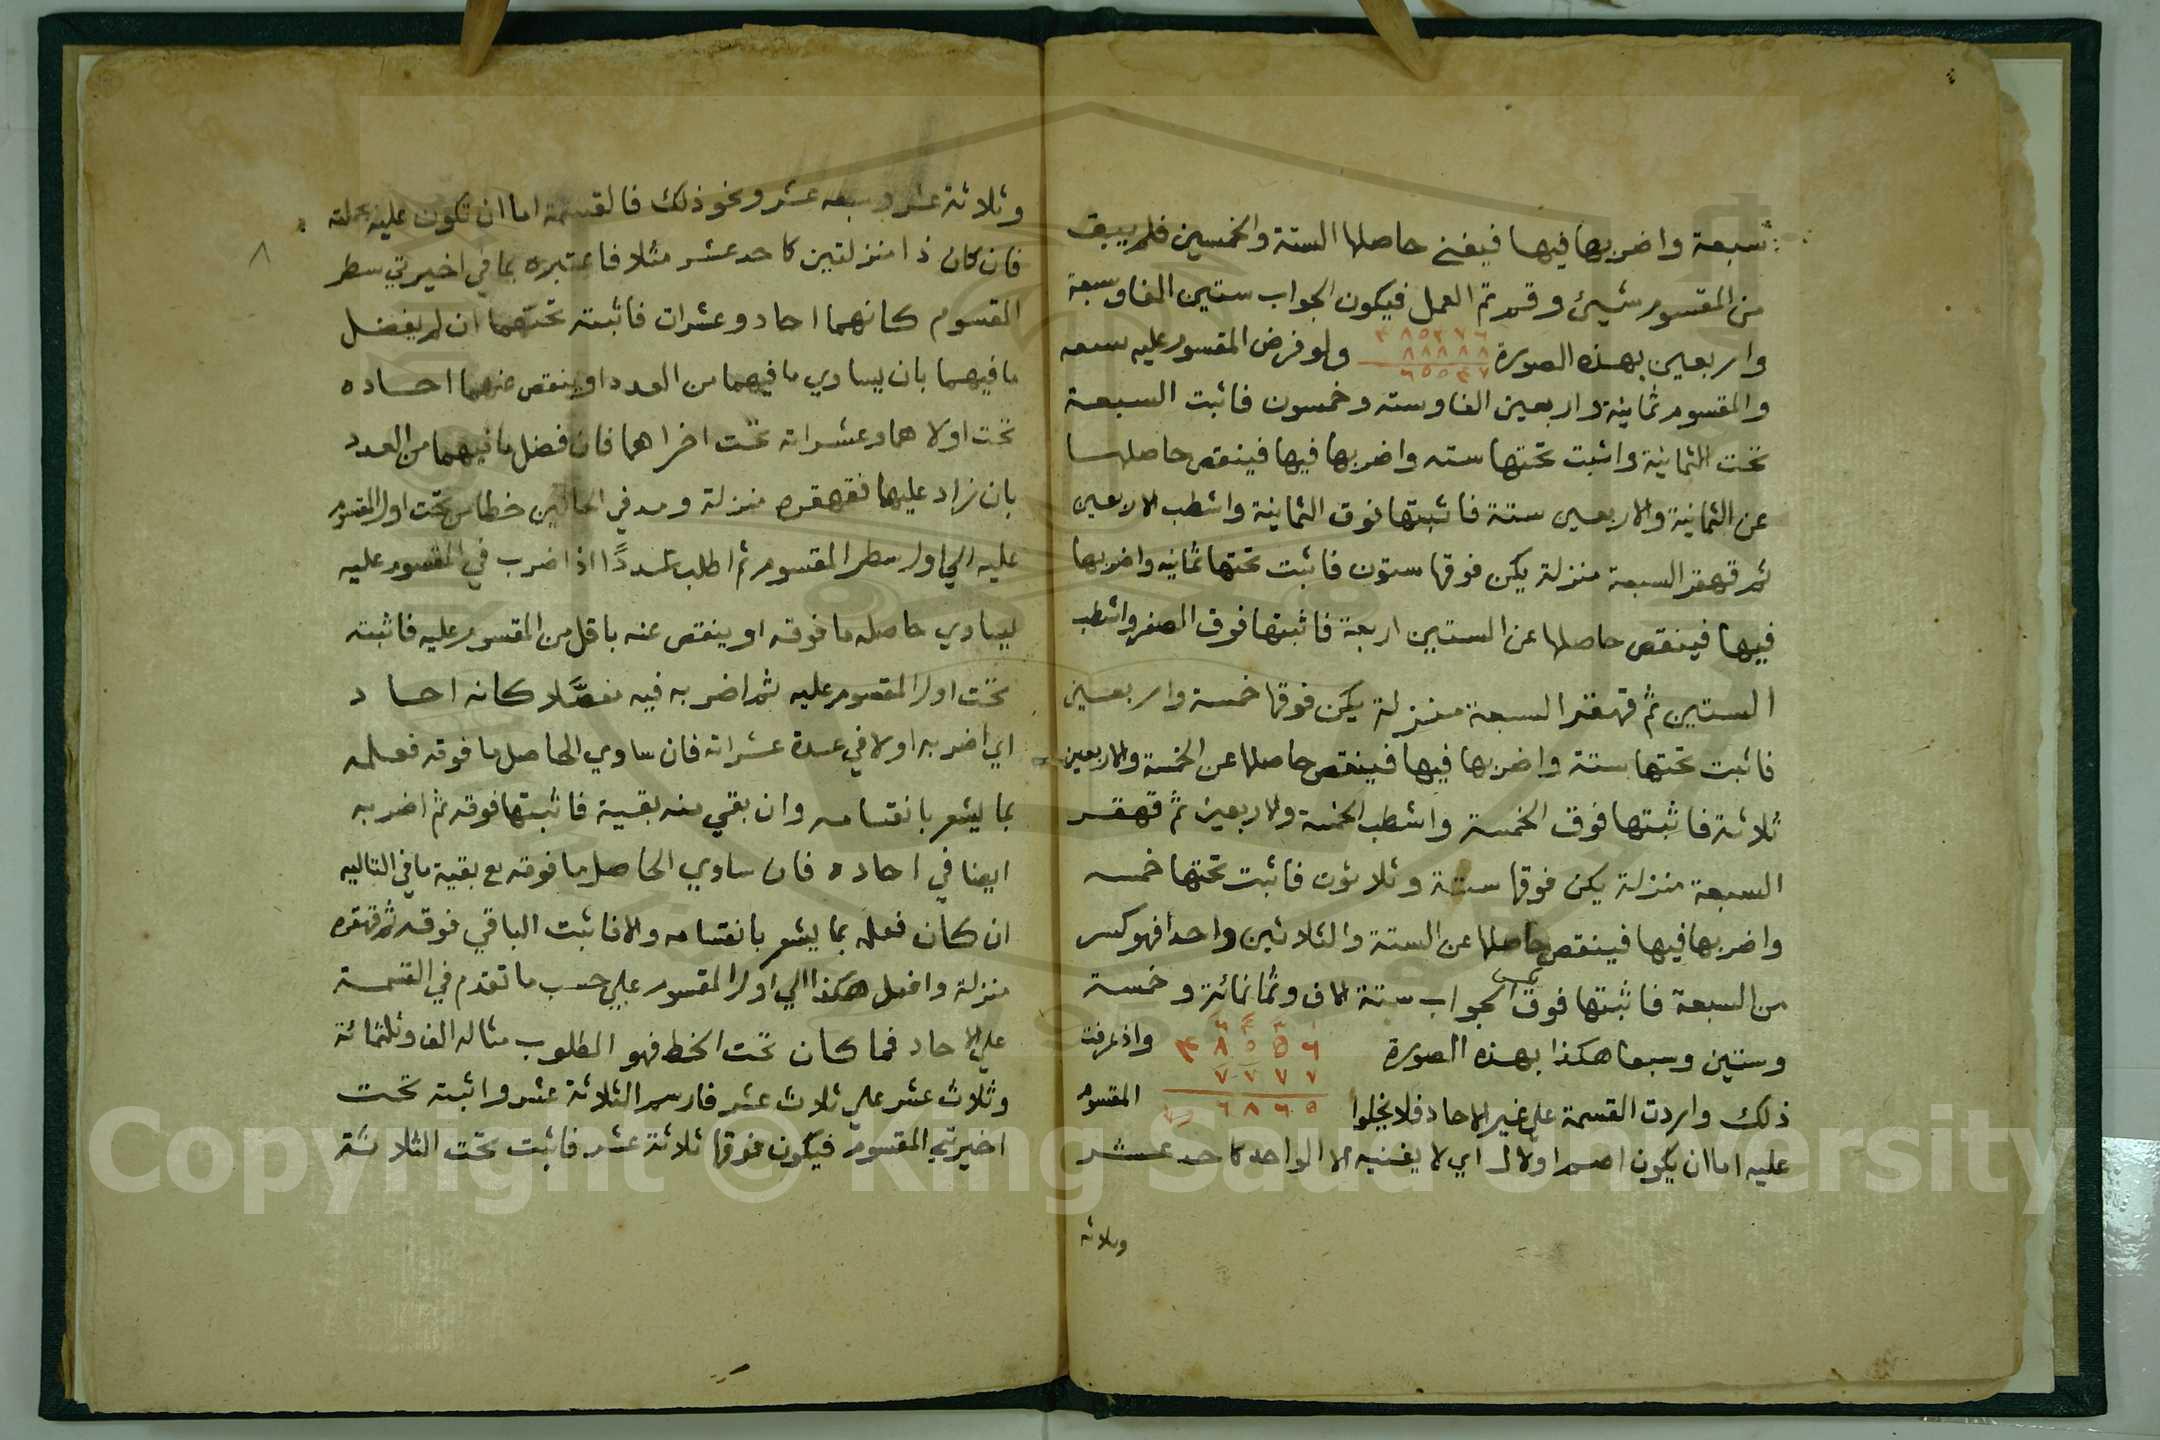 سبعة واضربها فيها فيفنى حاصلها الستة والخمسين فلم يبق
من المقسوم شيئ وقد تم العمل فيكون الجواب ستين الفا وسبعة
واربعين بهذه الصورة ولو فرض المقسوم عليه سبعه
٨٨٨٨٨
والمقسوم ثمانية واربعين الفا وسته وخمسون فاثبت السبعة
تحت الثمانية واثبت تحتها سته واضربها فيها فينقص حاصلها
عن الثمانية والاربعين ستة فاثبتها فوق الثمانية واشطب الاربعين
ثم قهقر السبعة منزلة يكن فوقها ستون فاثبت تحتها ثمانيه واضربها
فيها فينقص حاصلها عن الستين اربعة فاثبتها فوق الصفر واشطب
الستين ثم قهقر السبعة منزلة يكن فوقها خمسة واربعين
فاثبت تحتها ستة واضربها فيها فينقص حاصلها عن الخمسة والاربعين
ثلاثة فاثبتها فوق الخمسة واشطب الخمسة والاربعين ثم قهقر
السبعة منزلة يكن فوقها ستة وثلاثون فاثبت تحتها خمسه
واضربها فيها فينقص حاصلها عن الستة والثلاثين واحدا فهو كسر
من السبعة فاثبتها فوق الجواب ستة الاف وثمانمائة وخمسة
وستين وسبعا هكذا بهذه الصورة واذ عرفت
٧ ٧ ٧ ٧
٦ ٨ ٦ ٥
ذلك واردت القسمة على غير الاحاد فلا يخلوا المقسوم
عليه اما ان يكون اصم اولا اي لا يفنيه الا الواحد كاحد عشر
وثلاثه
٨
وثلاثة عشر وسبعه عشر ونحو ذلك فالقسمة اما ان تكون عليه بجملته
فان كان ذا منزلتين كاحد عشر مثلا فاعتبره بما في اخيرتي سطر
المقسوم كانهما احاد وعشرات فاثبته تحتهما ان لم يفضل
ما فيهما بان يساوي ما فيهما من العدد او ينقص عنهما احاده
تحت اولاهما وعشراته تحت اخراهما فان فضل ما فيهما من العدد
بان زاد عليها فقهقره منزلة ومد في الحالين خطا من تحت اول المقسوم
عليه الي اول سطر المقسوم ثم اطلب عددًا اذا ضرب في المقسوم عليه
يساوي حاصله ما فوقه او ينقص عنه باقل من المقسوم عليه فاثبته
تحت اول المقسوم عليه ثم اضربه فيه مفصلا كانه احاد
اي اضربه اولا في عدة عشراته فان ساوي الحاصل ما فوقه فعلمه
بما يشعر بانقسامه وان بقي منه بقية فاثبتها فوقه ثم اضربه
ايضا في احاده فان ساوي الحاصل ما فوقه مع بقية ما في التاليه
ان كان فعلمه بما يشعر بانقسامه والا فاثبت الباقي فوقه ثم قهقره
منزلة وافعل هكذا الي اول المقسوم علي حسب ما تقدم في القسمة
علي الاحاد فما كان تحت الخط فهو المطلوب مثاله الف وثلثمائة
وثلاث عشر علي ثلاث عشر فارسم الثلاثة عشر واثبته تحت
اخيرتي المقسوم فيكون فوقها ثلاثة عشر فاثبت تحت الثلاثة
Copyright © King Saud University